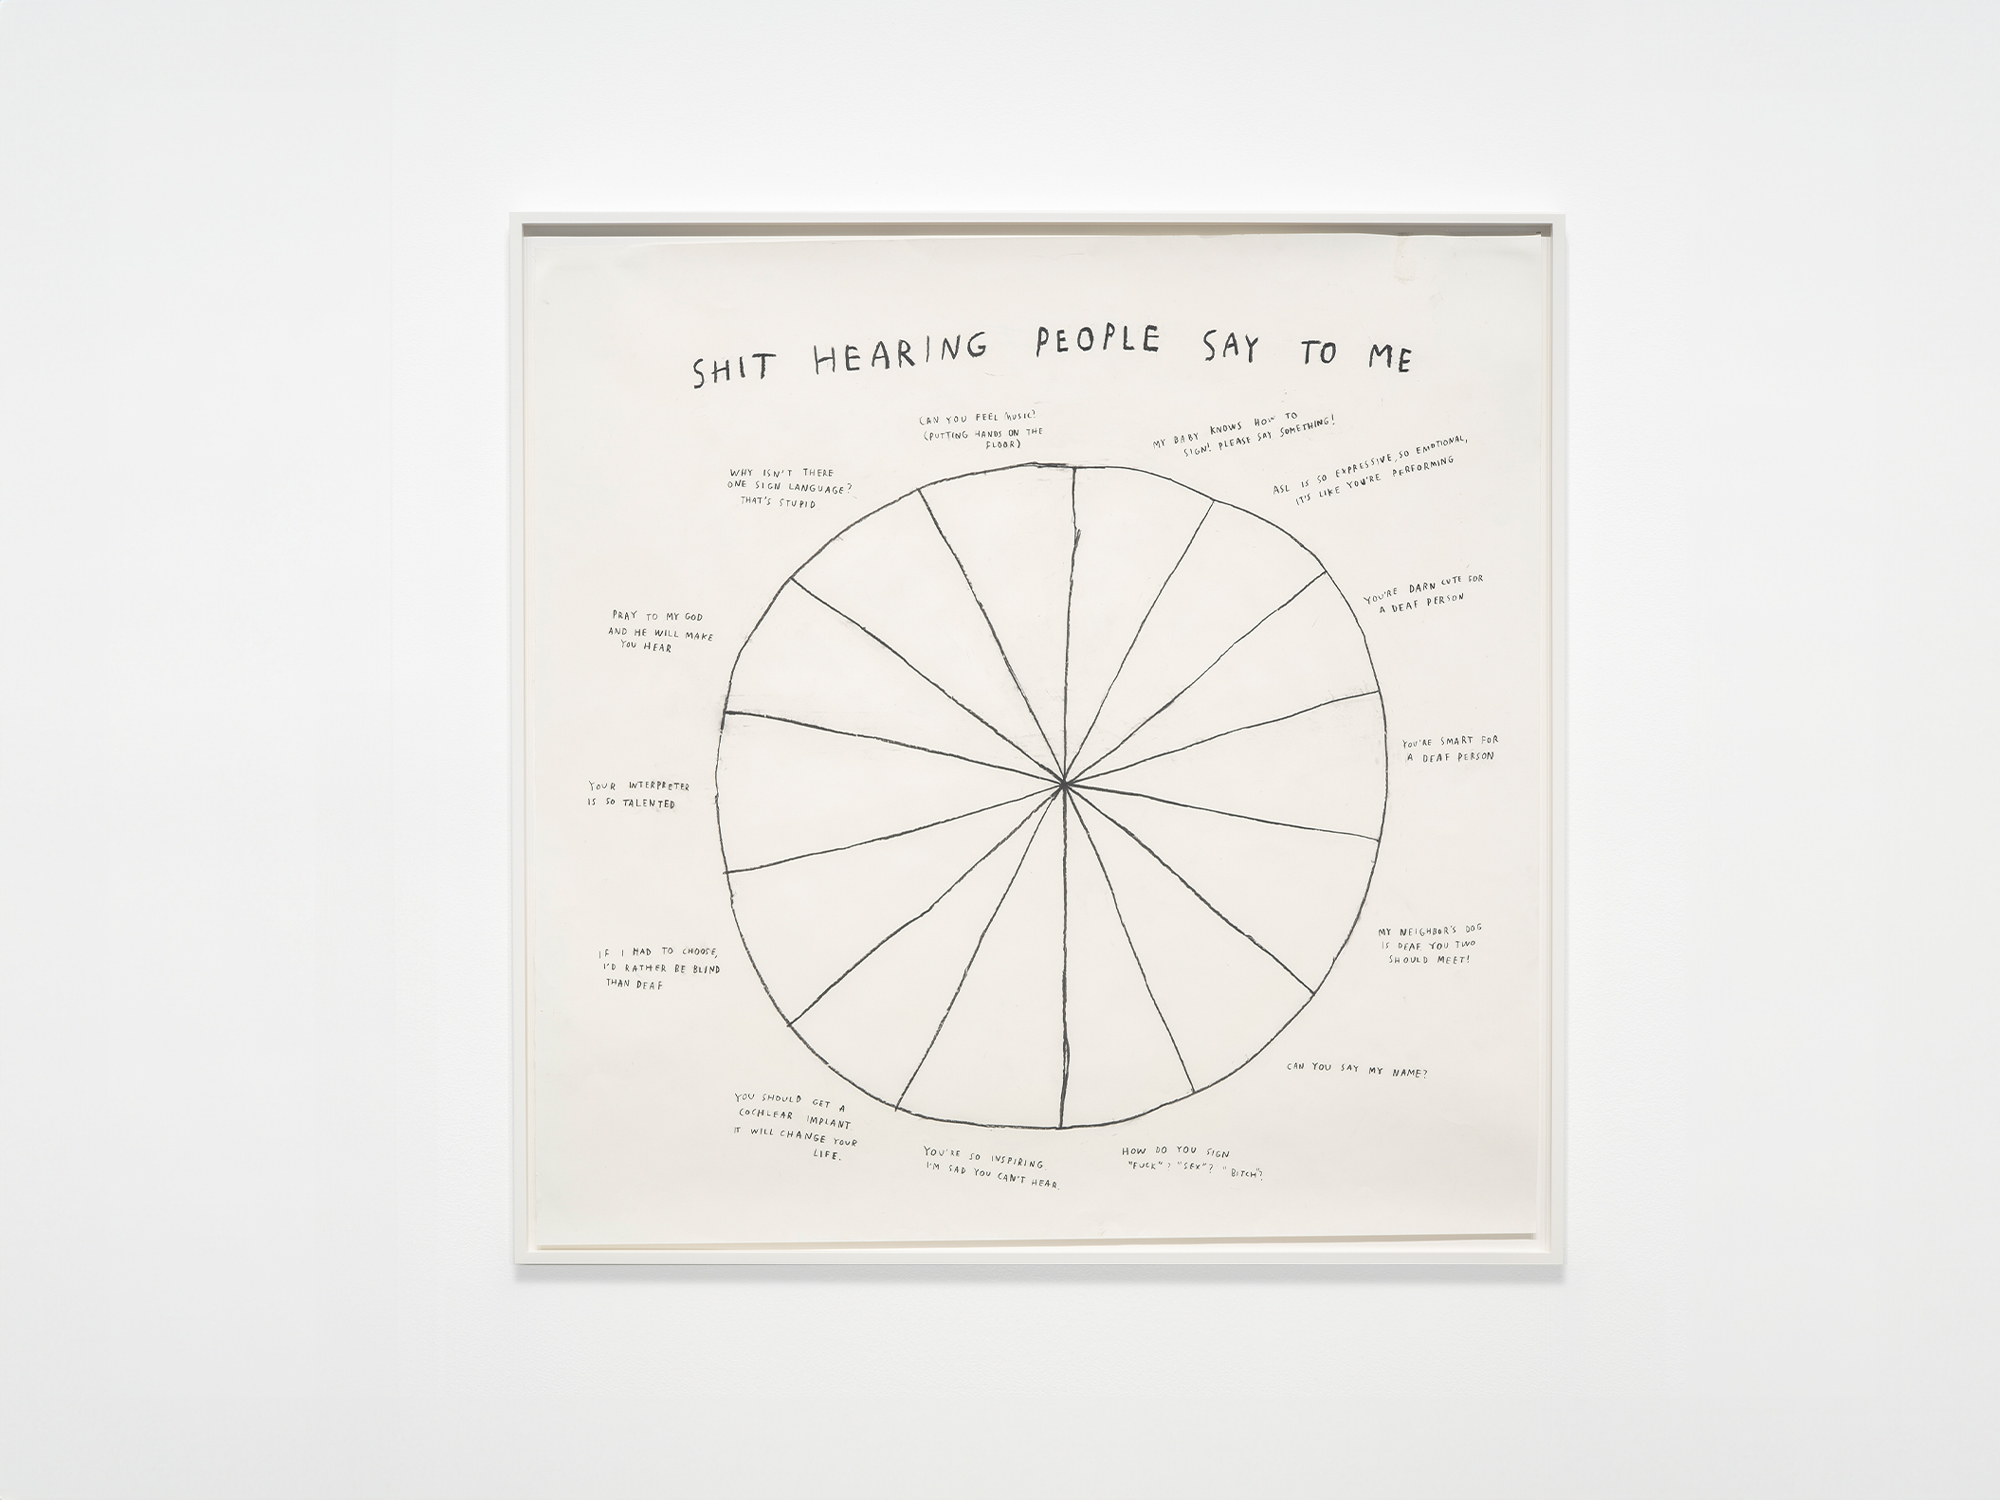 SHIT HEARING PEOPLE SAY TO ME
CAN YOU FEEL MUSIC?
(PUTTING HANDS ON THE
FLOOR)
MY BABY KNOWS HOW TO
SIGN! PLEASE SAY SOMETHING!
ASL IS SO EXPRESSIVE, SO EMOTIONAL,
IT'S LIKE YOU'RE PERFORMING
YOU'RE DARN CUTE FOR
A DEAF PERSON
YOU'RE SMART FOR
A DEAF PERSON
MY NEIGHBOR'S DOG
IS DEAF. YOU TWO
SHOULD MEET!
CAN YOU SAY MY NAME?
HOW DO YOU SIGN
"FUCK"? "SEX"? "BITCH"?
YOU'RE SO INSPIRING
I'M SAD YOU CAN'T HEAR.
YOU SHOULD GET A
COCHLEAR IMPLANT.
IT WILL CHANGE YOUR
LIFE.
IF I HAD TO CHOOSE,
I'D RATHER BE BLIND
THAN DEAF
YOUR INTERPRETER
IS SO TALENTED
PRAY TO MY GOD
AND HE WILL MAKE
YOU HEAR
WHY ISN'T THERE
ONE SIGN LANGUAGE?
THAT'S STUPID